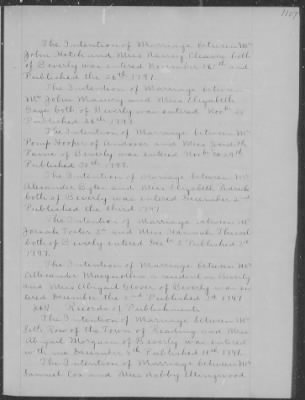 The Intention of Marriage between Mr
John Hatch and Miss Nancy Cleaves both
of Beverly was entered November 26th and
Published the 26th 1797.
The Intention of Marriage between
Mr John and Miss Elizabeth
both of Beverly was entered Novr
Published 26th 1797
The Intention of Marriage between Mr
Pomp Hooper of Andover and Miss
of Beverly was entered Novbr 29th
Published 1797.
The Intention of Marriage between Mr
Alexander and Miss Elizabeth
both of Beverly was entered December 2nd
Published the third 1797
The Intention of Marriage between Mr
Josiah Foster 3d and Miss Hannah
both of Beverly entered Dec 2 Published 3d
1797.
The Intention of Marriage between Mr
a resident in Beverly
and Miss Abigail Glover of Beverly was en
tered December the 2nd Published 3d 1797
Records of Publishments
The Intention of Marriage between Mr
of the Town of Reading and Miss
Abigail Morgan of Beverly was entered
with me December Published
The Intention of Marriage between Mr
Samuel Cox and Miss Ellingwood